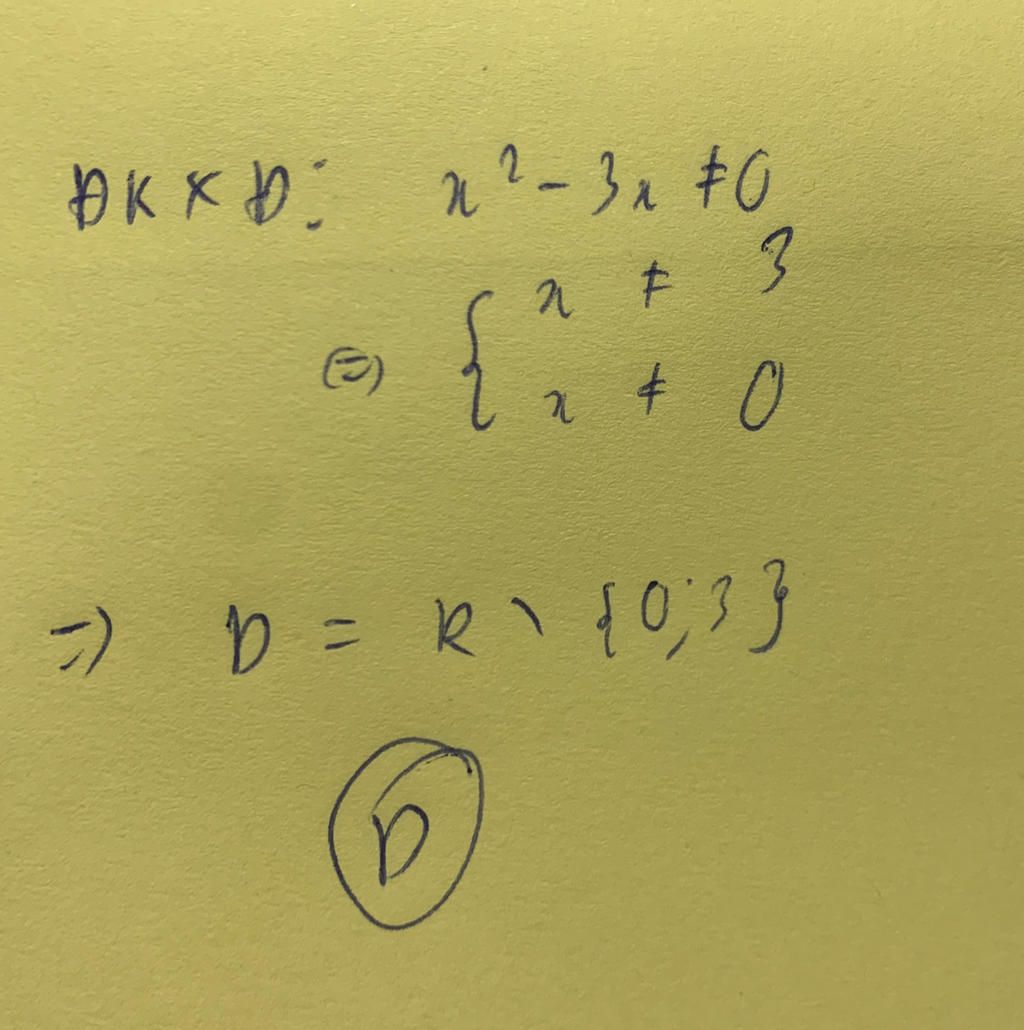 ĐKXĐ: x² - 3x ≠ 0
⇔ { x ≠ 3
x ≠ 0
⇒ D = R \ {0;3}
D